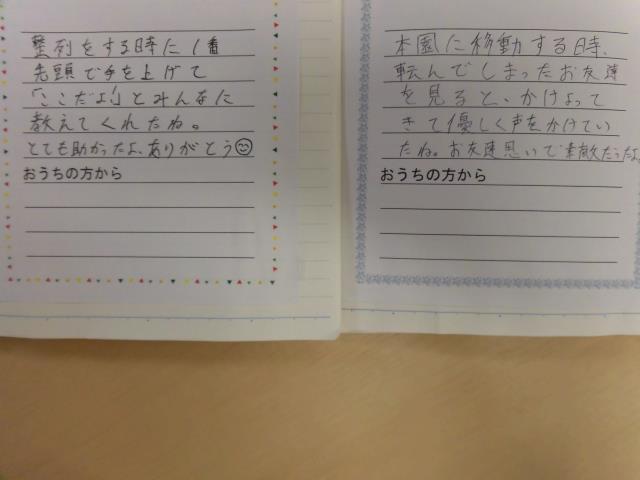 整列をする時に1番
先頭で手を上げて
「ここだよ!」とみんなに
教えてくれたね。
とても助かったよ、ありがとう☺
おうちの方から
本園に移動する時、
転んでしまったお友達
を見ると、かけよって
きて優しく声をかけてい
たね。お友達思いで素敵だったよ
おうちの方から